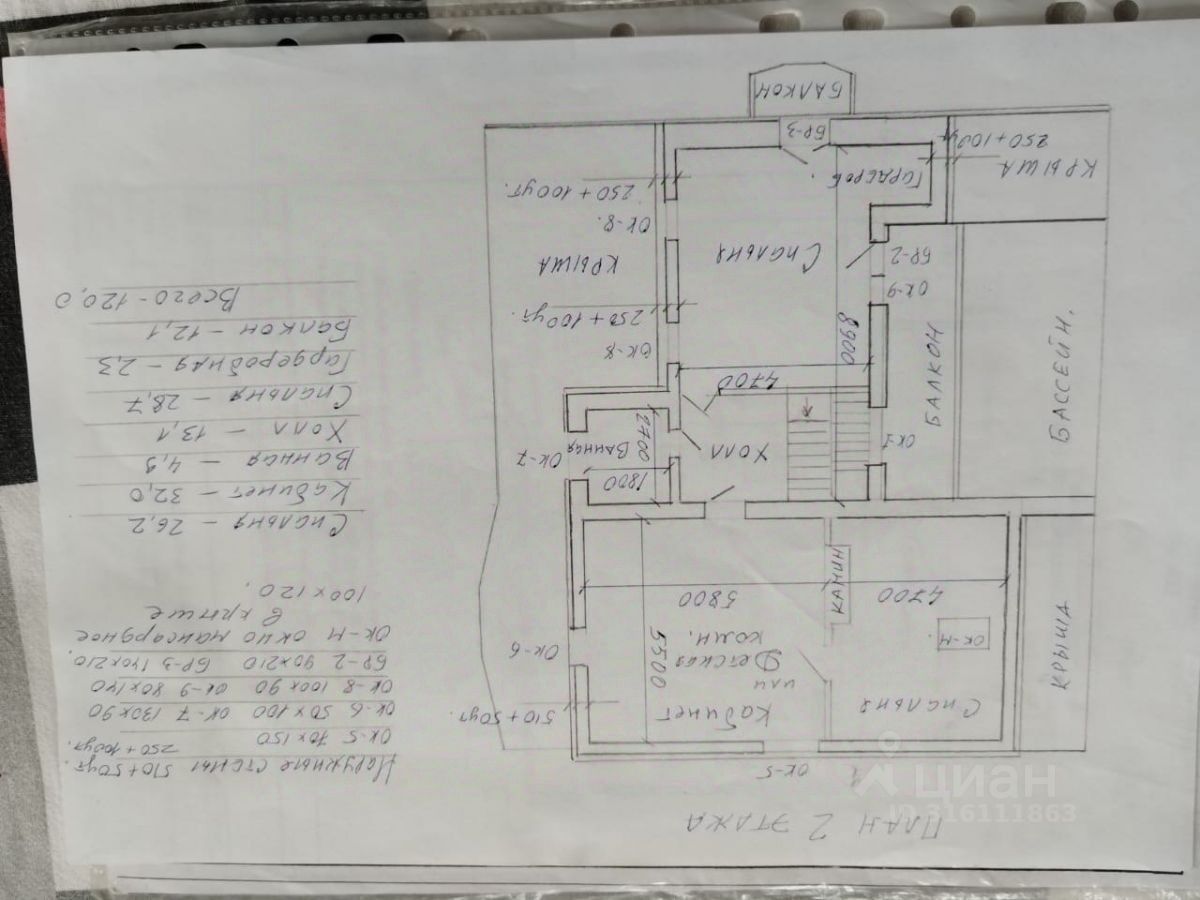 ПЛАН 2 ЭТАЖА
Наружные стены 510+50ут.
250+100ут.
ОК-5 70х150
ОК-6 50х100 ОК-7 130х90
ОК-8 100х90 ОК-9 80х140
БР-2 90х210 БР-3 140х210.
ОК-М окно мансардное
в крыше
100х120.
Спальня – 26,2
Кабинет – 32,0
Ванная – 4,9
Холл – 13,1
Спальня – 28,7
Гардеробная – 2,3
Балкон – 12,1
Всего – 120,0
ОК-5
510+50ут.
Кабинет
или
Детская
комн.
5500
Спальня
ОК-М.
КРЫША
ОК-6
5800
КАМИН
4700
ОК-7
1800
Ванная
2700
ХОЛЛ
ОК-1
4700
8900
ОК-8
250+100ут.
КРЫША
ОК-8.
250+100ут.
Спальня
ОК-9
БР-2
БАЛКОН
БАССЕЙН.
Гардероб.
КРЫША
250+100ут
БР-3
БАЛКОН
циан
ID 316111863